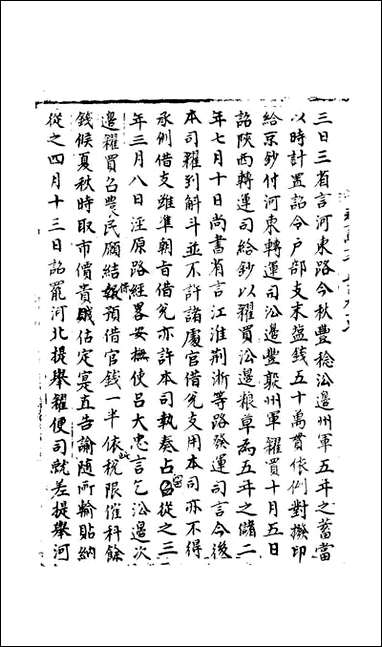 三日三省言河東路今秋豐稔沿邊州軍五年之蓄當
以時計置詔令戶部支末鹽錢五十萬貫依例對撥印
給京鈔付河東轉運司沿邊豐熟州軍糴買十月五日
詔陝西轉運司給鈔以糴買沿邊糧草為五年之儲二
年七月十日尚書省言江淮荆浙等路發運司言今後
本司糴到斛斗並不許諸處官借兊支用本司亦不得
承例借支雖準朝旨借兊亦許本司執奏占留從之三
年三月八日涇原路經畧安撫使呂大忠言乞沿邊次
邊糴買召農民願結保預借官錢一半依稅限催科餘
錢候夏秋時取市價貴賤估定寔直告諭随所輸貼納
從之四月十三日詔罷河北提舉糴便司就差提舉河